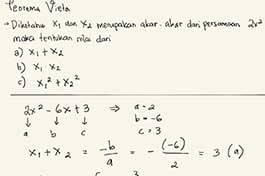 Teorema Vieta
→ Diketahui x₁ dan x₂ merupakan akar-akar dari persamaan 2x²
maka tentukan nilai dari
a) x₁ + x₂
b) x₁ x₂
c) x₁² + x₂²
2x² - 6x + 3 ⇒ a = 2
↓ ↓ ↓ b = -6
a b c c = 3
x₁ + x₂ = -b/a = - (-6)/2 = 3 (a)
c 3